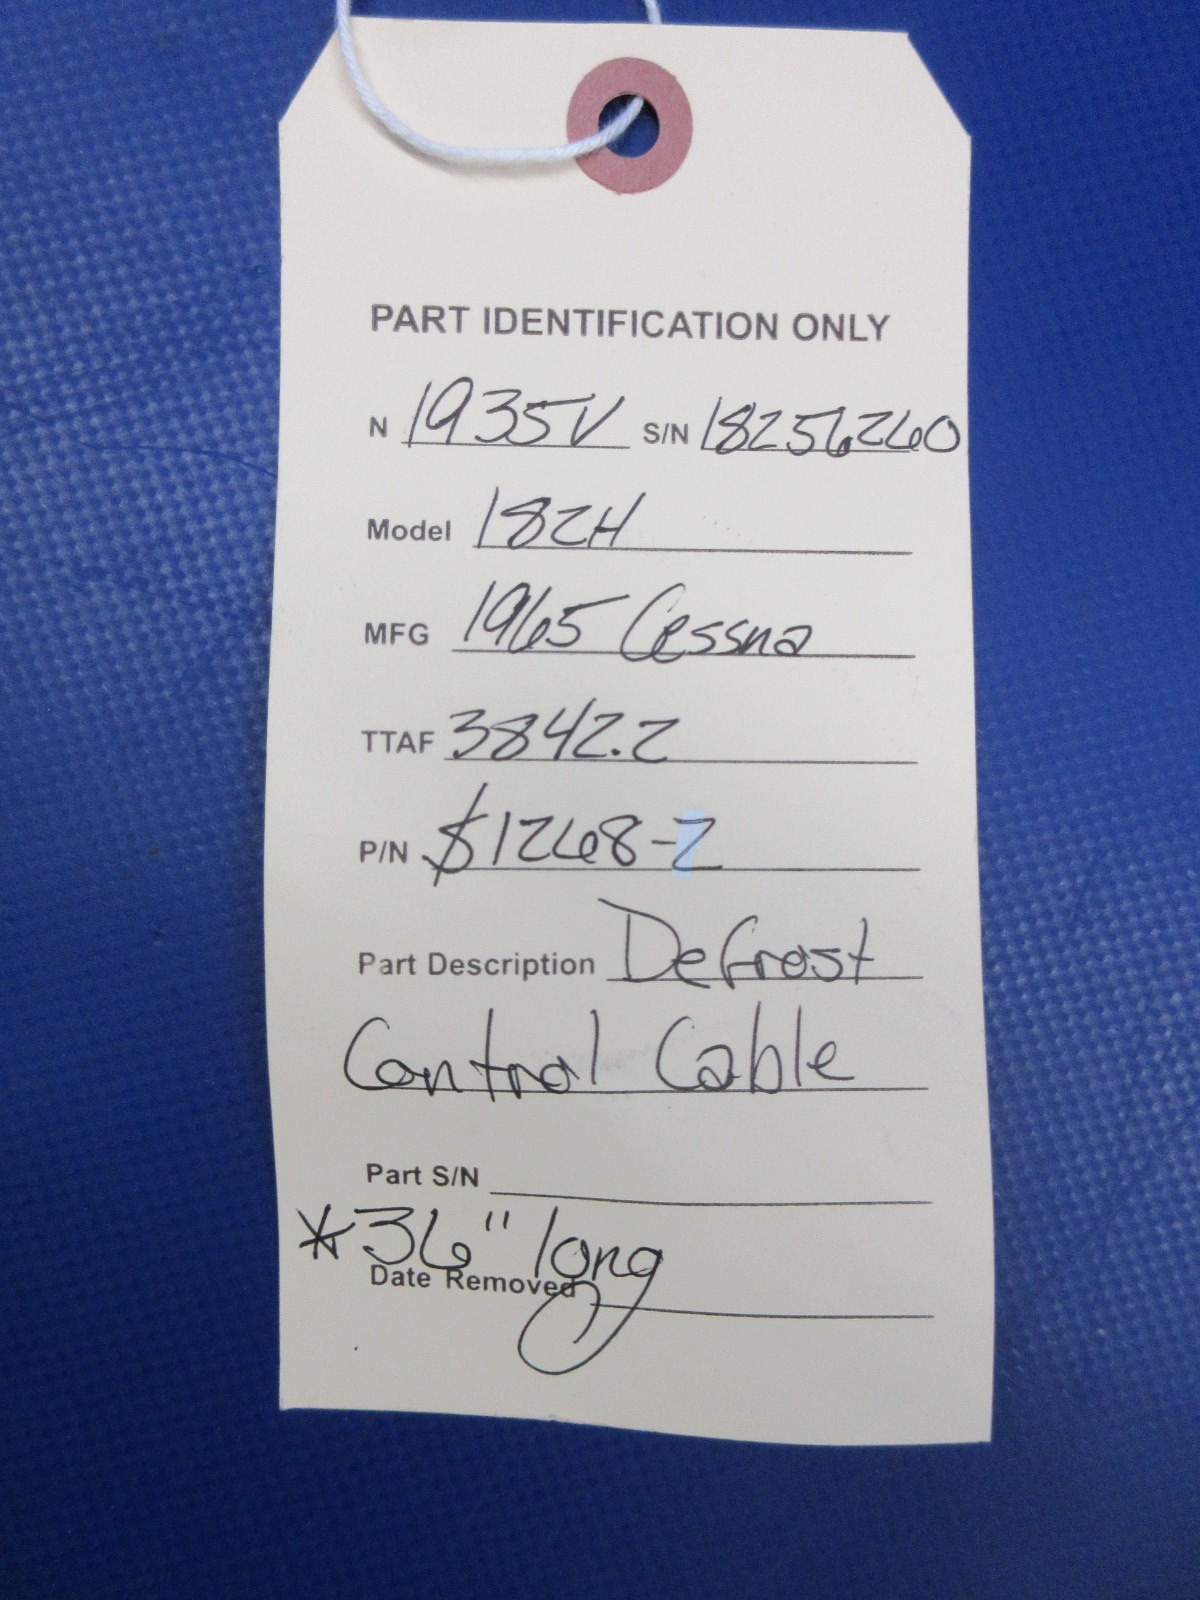 PART IDENTIFICATION ONLY
N 1935V S/N 18256260
Model 182H
MFG 1965 Cessna
TTAF 3842.2
P/N $1268-2
Part Description Defrost
Control Cable
Part S/N
*36" long
Date Removed